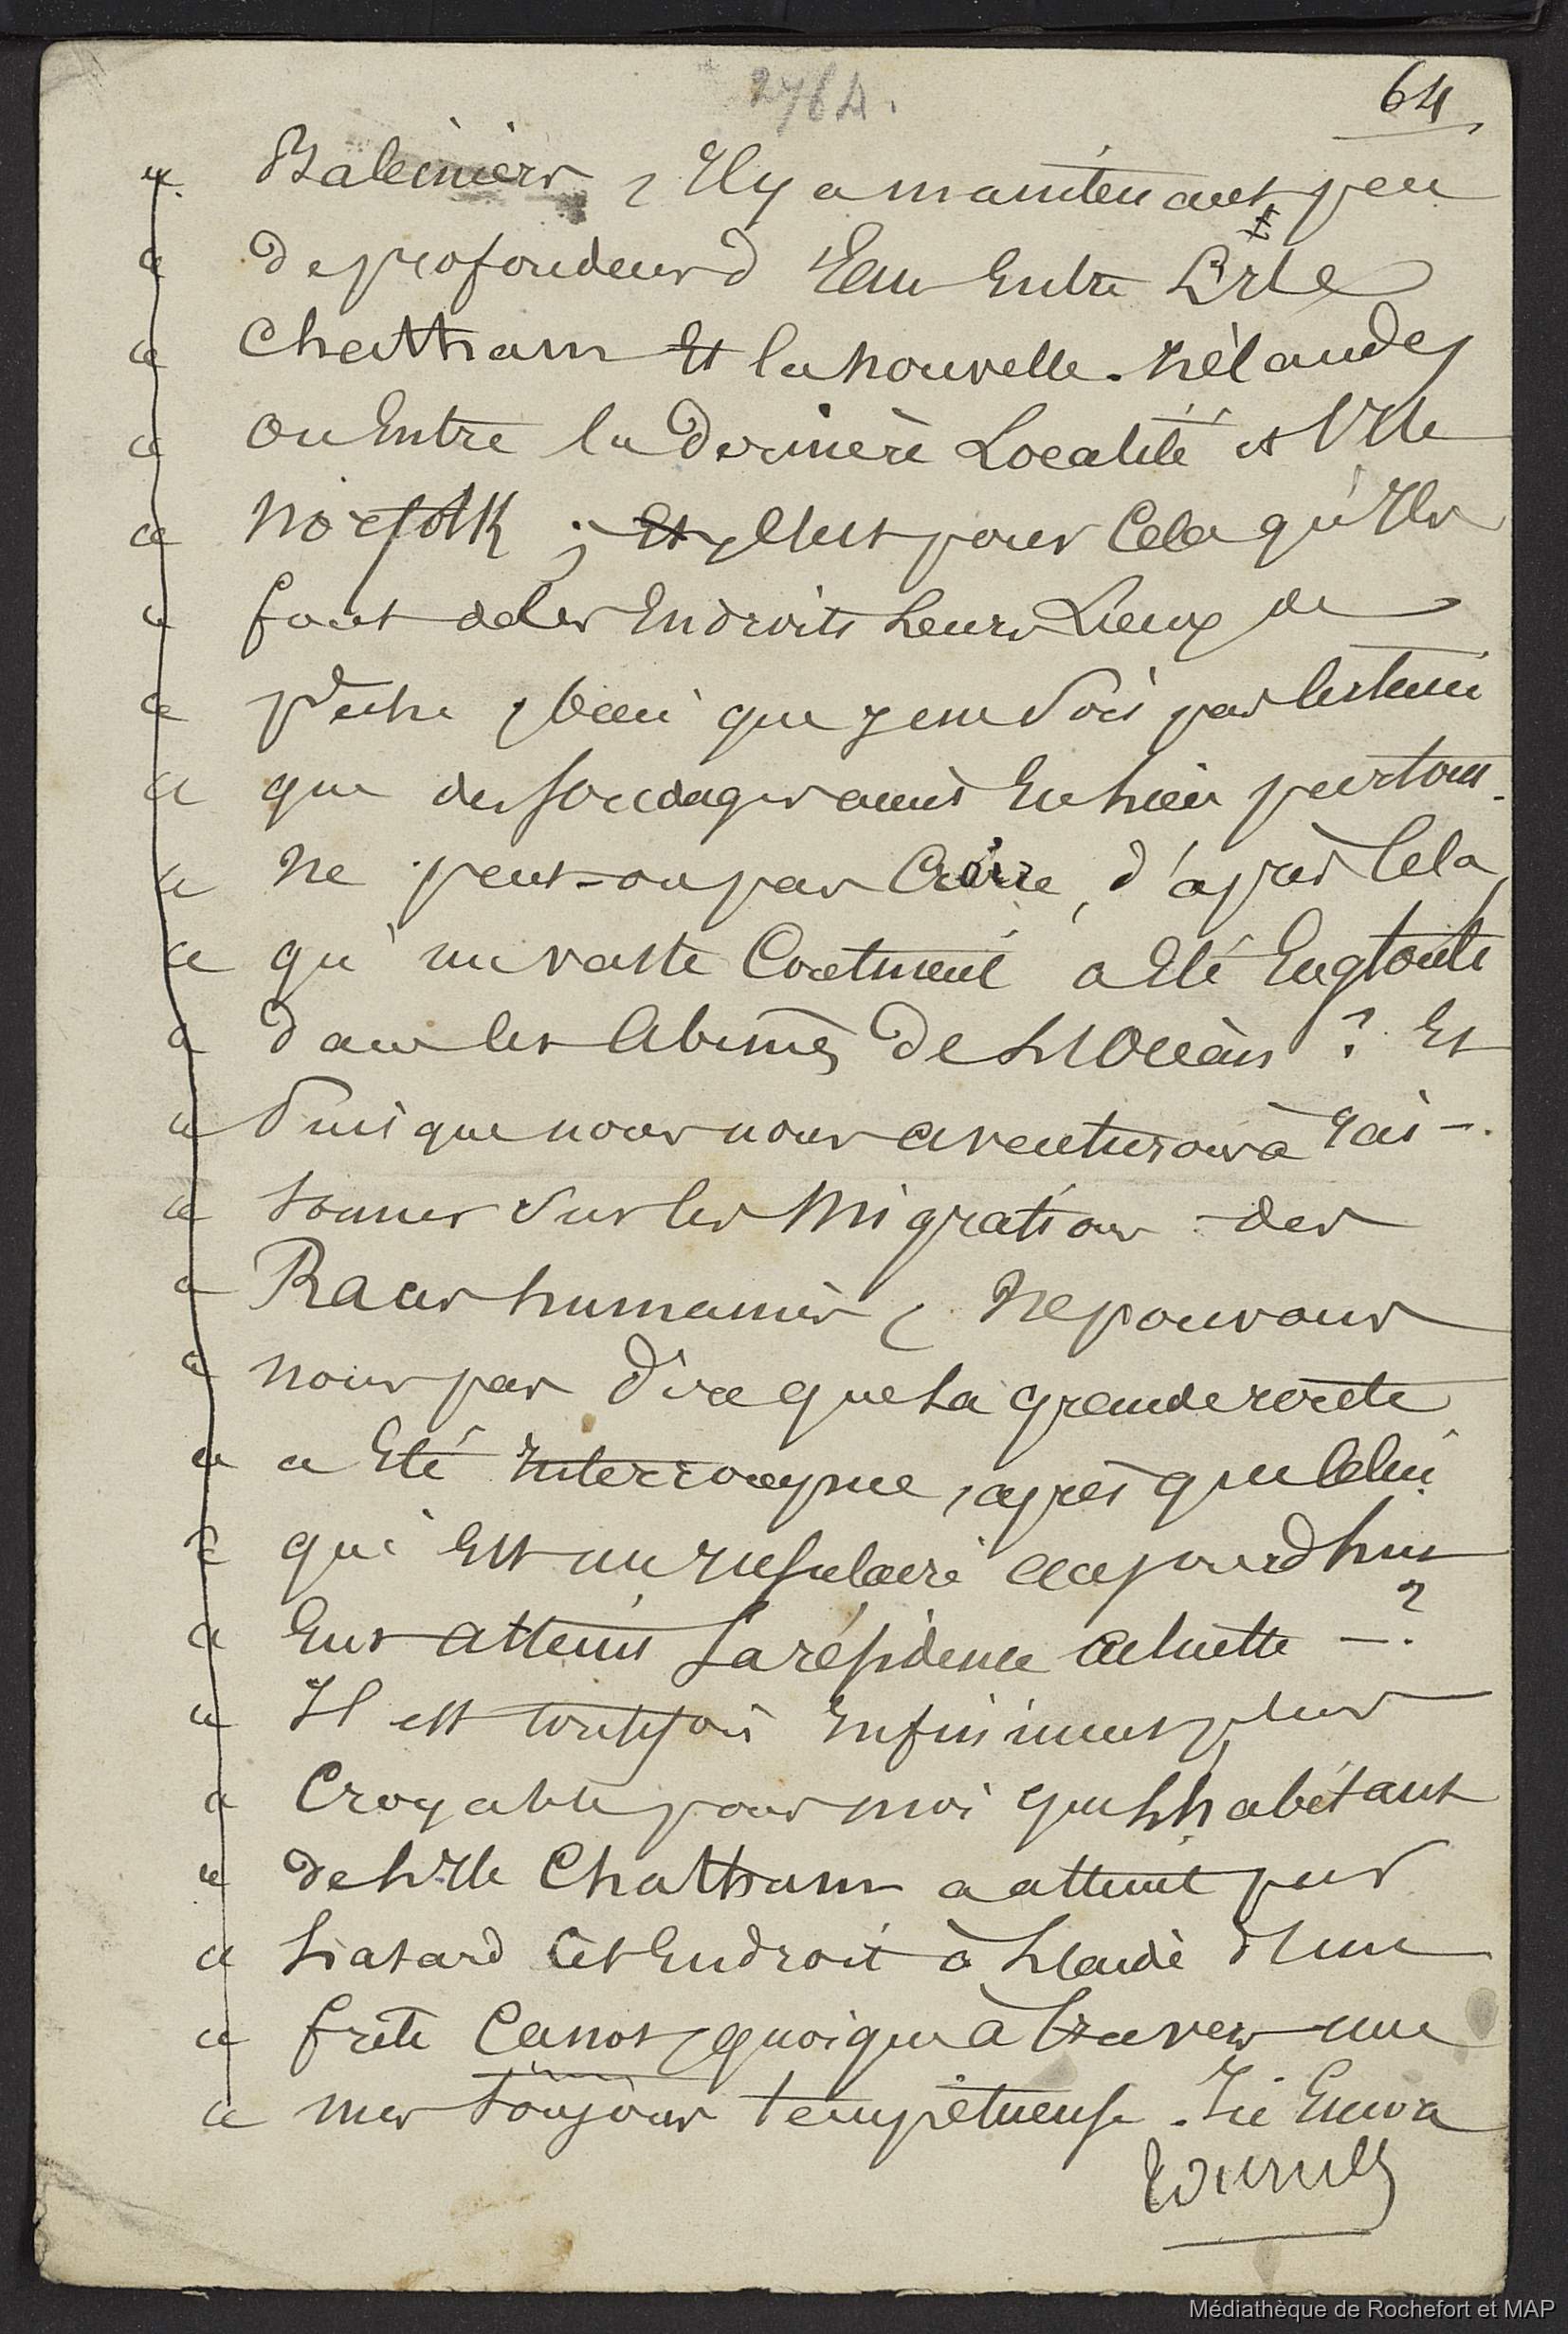 2764.
64
« Baleiniers, Il y a maintenant peu
« de profondeur d Eau Entre L'Ile
« Chattham Et la nouvelle-Zélande,
« ou Entre la dernière Localité et l'Ile
« Norfolk ; Et c'est pour Cela qu'Ils
« font de les Endroits Leurs Lieux de
« Pêche, bien que je ne sois pas certain
« que des sondages aient Eu lieu partout.
« Ne peut-on pas Croire, d'après Cela,
« qu'un vaste Continent a Eté Englouti
« dans les Abimes De L'Océan ? Et
« Puisque nous nous aventurons à rai-
« sonner sur les Migrations des
« Races humaines, Ne pouvons
« nous pas Dire que La grande route
« a Eté Interrompue, après que Celui
« qui Est un Insulaire aujourdhui
« Eut atteint Sa résidence actuelle -?
« Il est toutefois Infiniment plus
« Croyable pour moi que L'habitant
« de L'Ile Chattham a atteint par
« hasard Cet Endroit à L'aide d'une
« frêle Canot, quoique à travers une
« mer toujours tempêtueuse. Ici Encore
Médiathèque de Rochefort et MAP